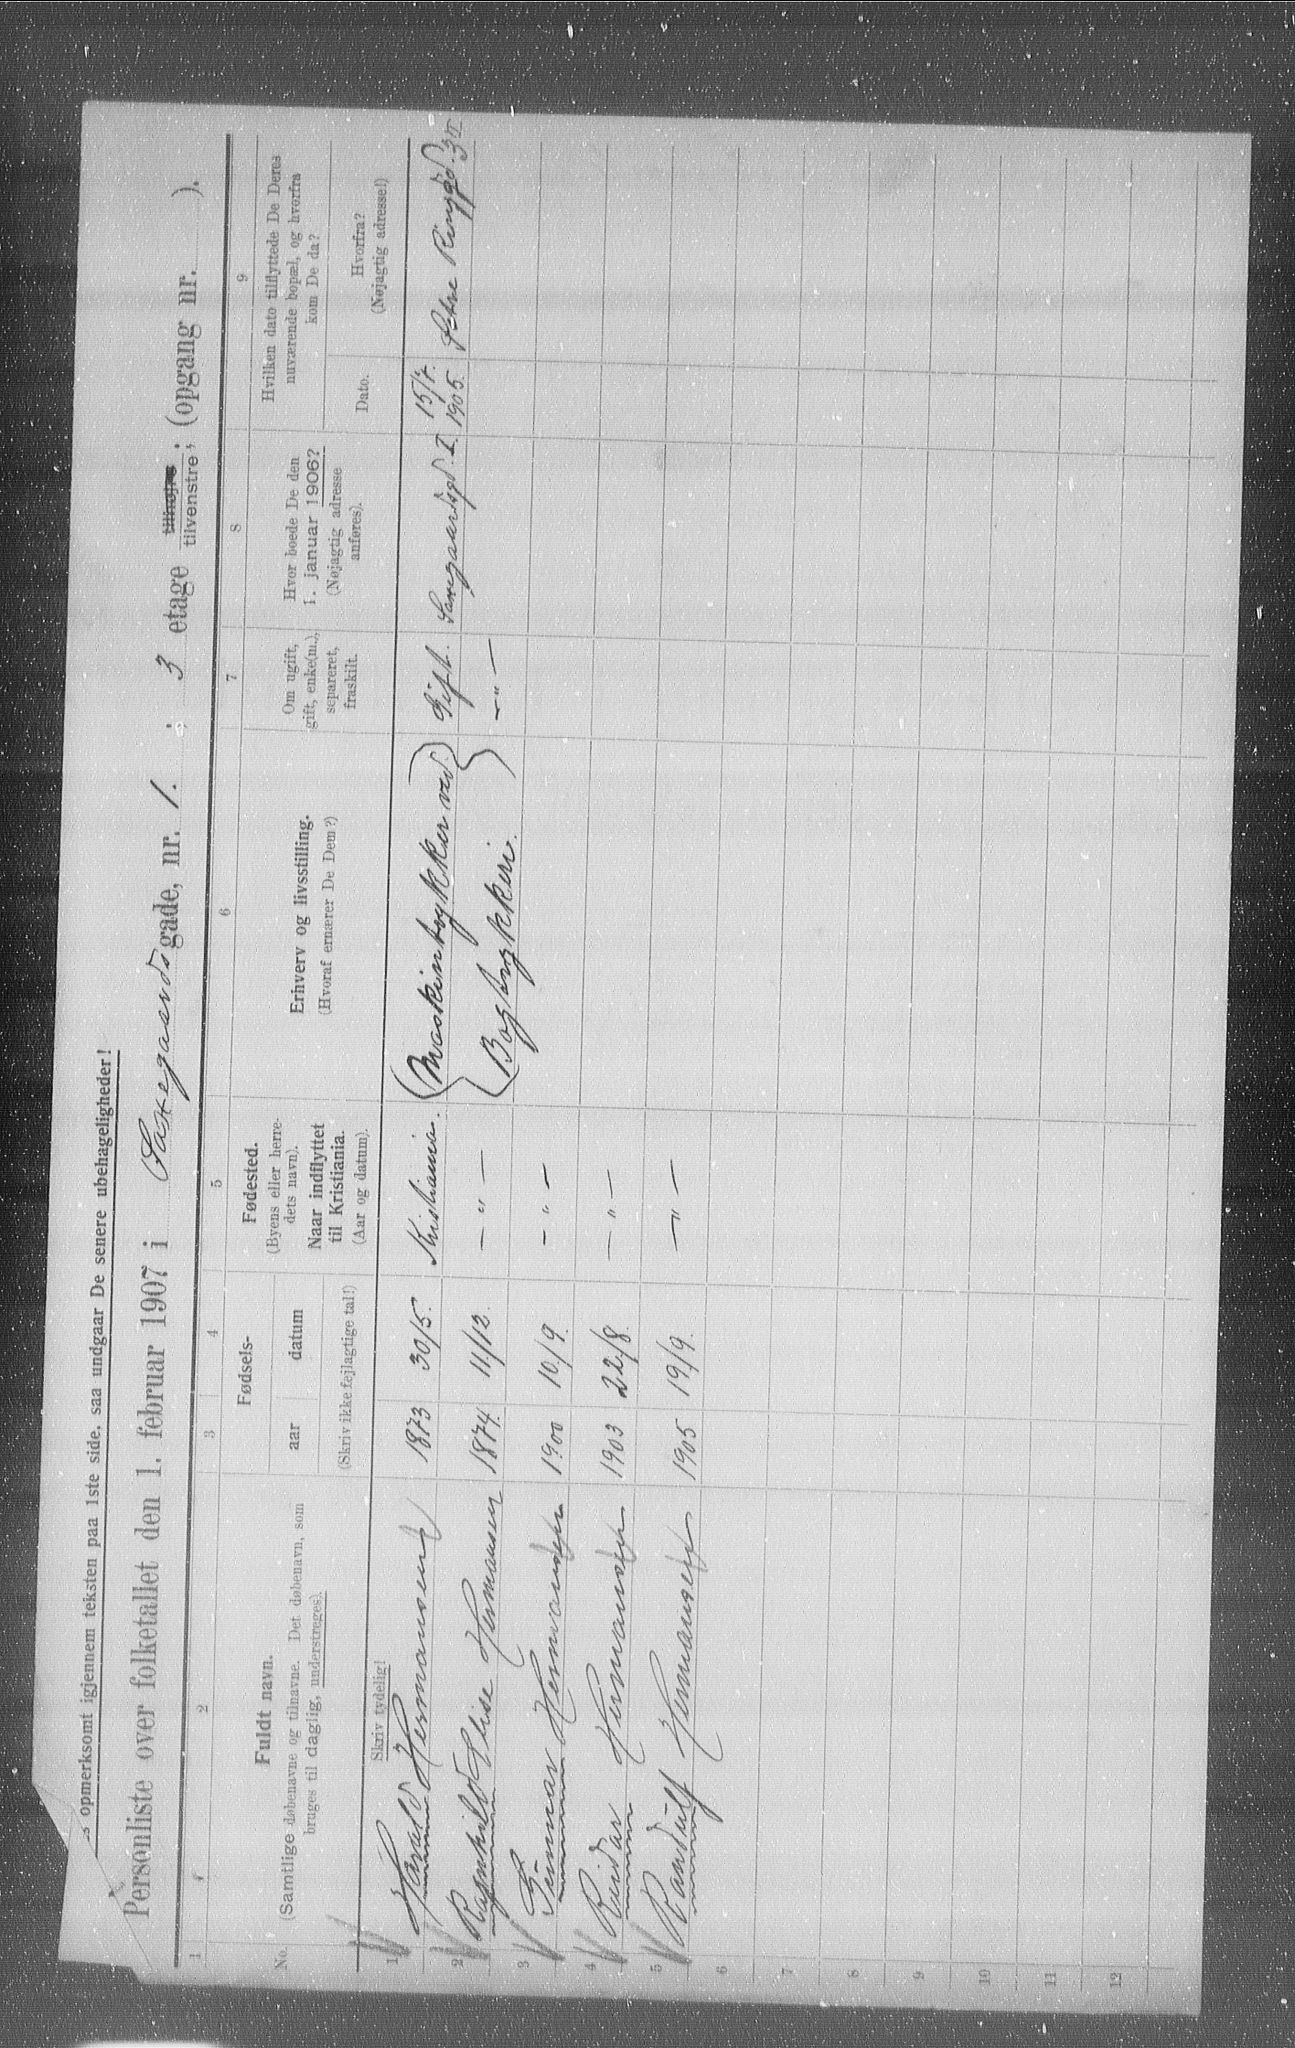 opmerksomt igjennem teksten paa 1ste side, saa undgaar De senere ubehageligheder!
Personliste over folketallet den 1. februar 1907 i Saxegaardsgade, nr. 1. ; 3 etage tilhøjre tilvenstre; (opgang nr. ).
1 2 3 4 5 6 7 8 9
No.
Fuldt navn.
(Samtlige døbenavne og tilnavne. Det døbenavn, som
bruges til daglig, understreges).
Skriv tydelig!
Fødsels-
aar datum
(Skriv ikke fejlagtige tal!)
Fødested.
(Byens eller herre-
dets navn).
Naar indflyttet
til Kristiania.
(Aar og datum).
Erhverv og livsstilling.
(Hvoraf ernærer De Dem?)
Om ugift,
gift, enke(m.),
separeret,
fraskilt.
Hvor boede De den
1. januar 1906?
(Nøjagtig adresse
anføres).
Hvilken dato tilflyttede De Deres
nuværende bopæl, og hvorfra
kom De da?
Dato.
Hvorfra?
(Nøjagtig adresse!)
1 Harald Hermansen 1873 30/5. Kristiania. Maskintrykker ved Gift. Saxegaardsgd. 1. 15/7. 1905.
2 Ragnhild Elise Hermansen 1874. 11/12. — " — Bogtrykkeri. — " —
3 Gunnar Hermansen 1900 10/9. — " —
4 Reidar Hermansen 1903 22/8. — " —
5 Randulf Hermansen 1905 19/9. — " —
6
7
8
9
10
11
12